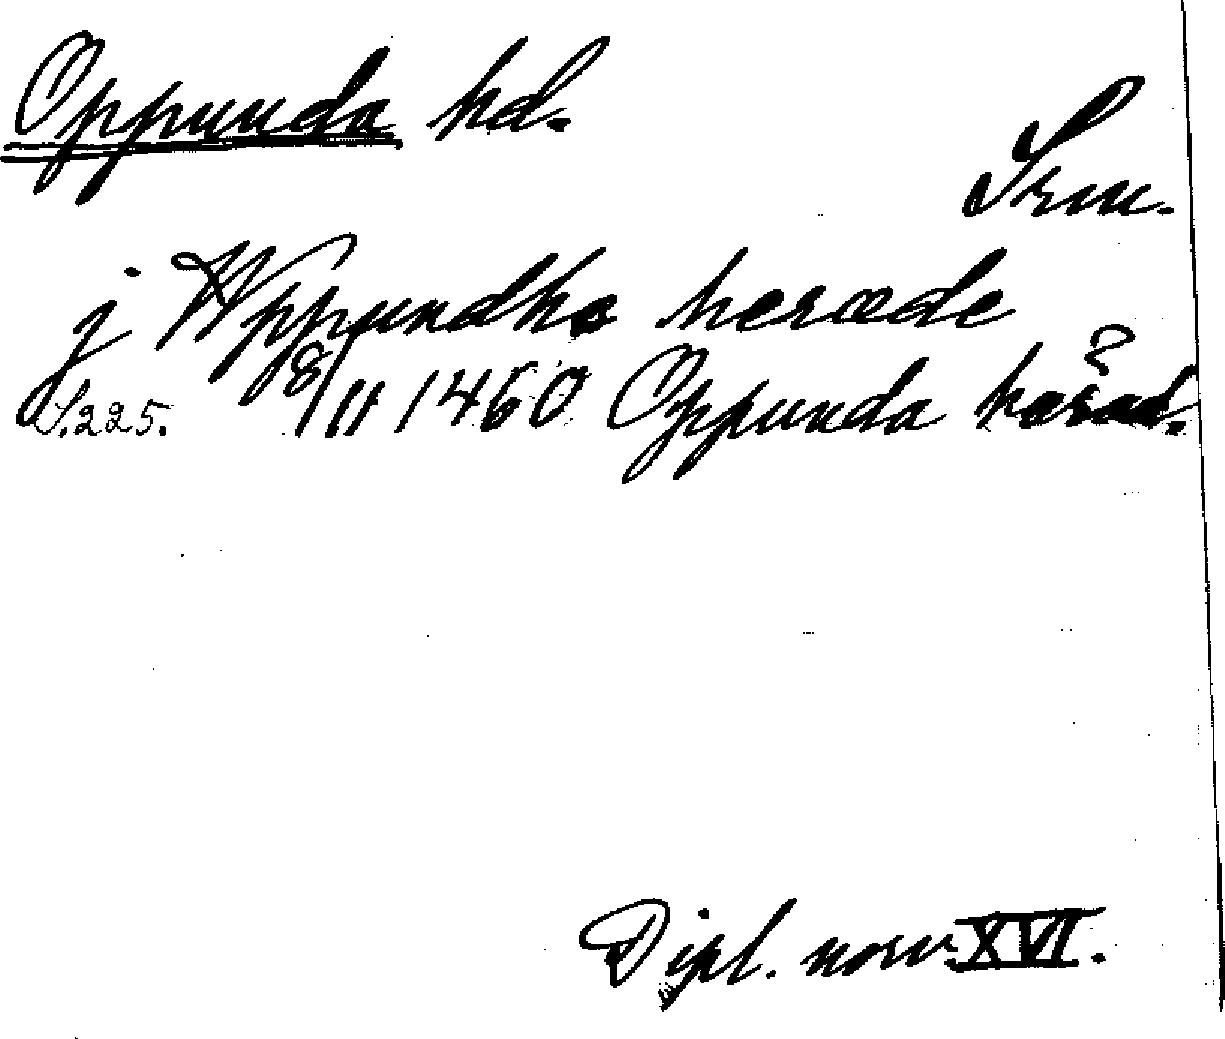 Oppunda hd.
Srm.
j Wppundhe heræde
S. 225. 8/11 1460 Oppunda härad. ?
Dipl. norv. XVI.